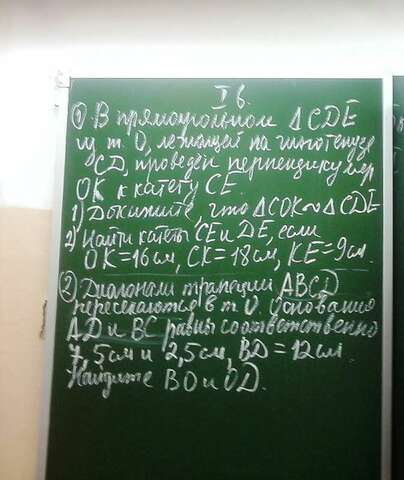 I в.
① В прямоугольном ΔCDE
из т. О, лежащей на гипотенузе
CD, проведён перпендикуляр
OK к катету CE.
1) Докажите, что ΔCOK ~ ΔCDE
2) Найти катеты CE и DE, если
OK=16см, CK=18см, KE=9см.
② Диагонали трапеции ABCD
пересекаются в т. O. Основания
AD и BC равны соответственно
7,5см и 2,5см, BD=12см.
Найдите BO и OD.